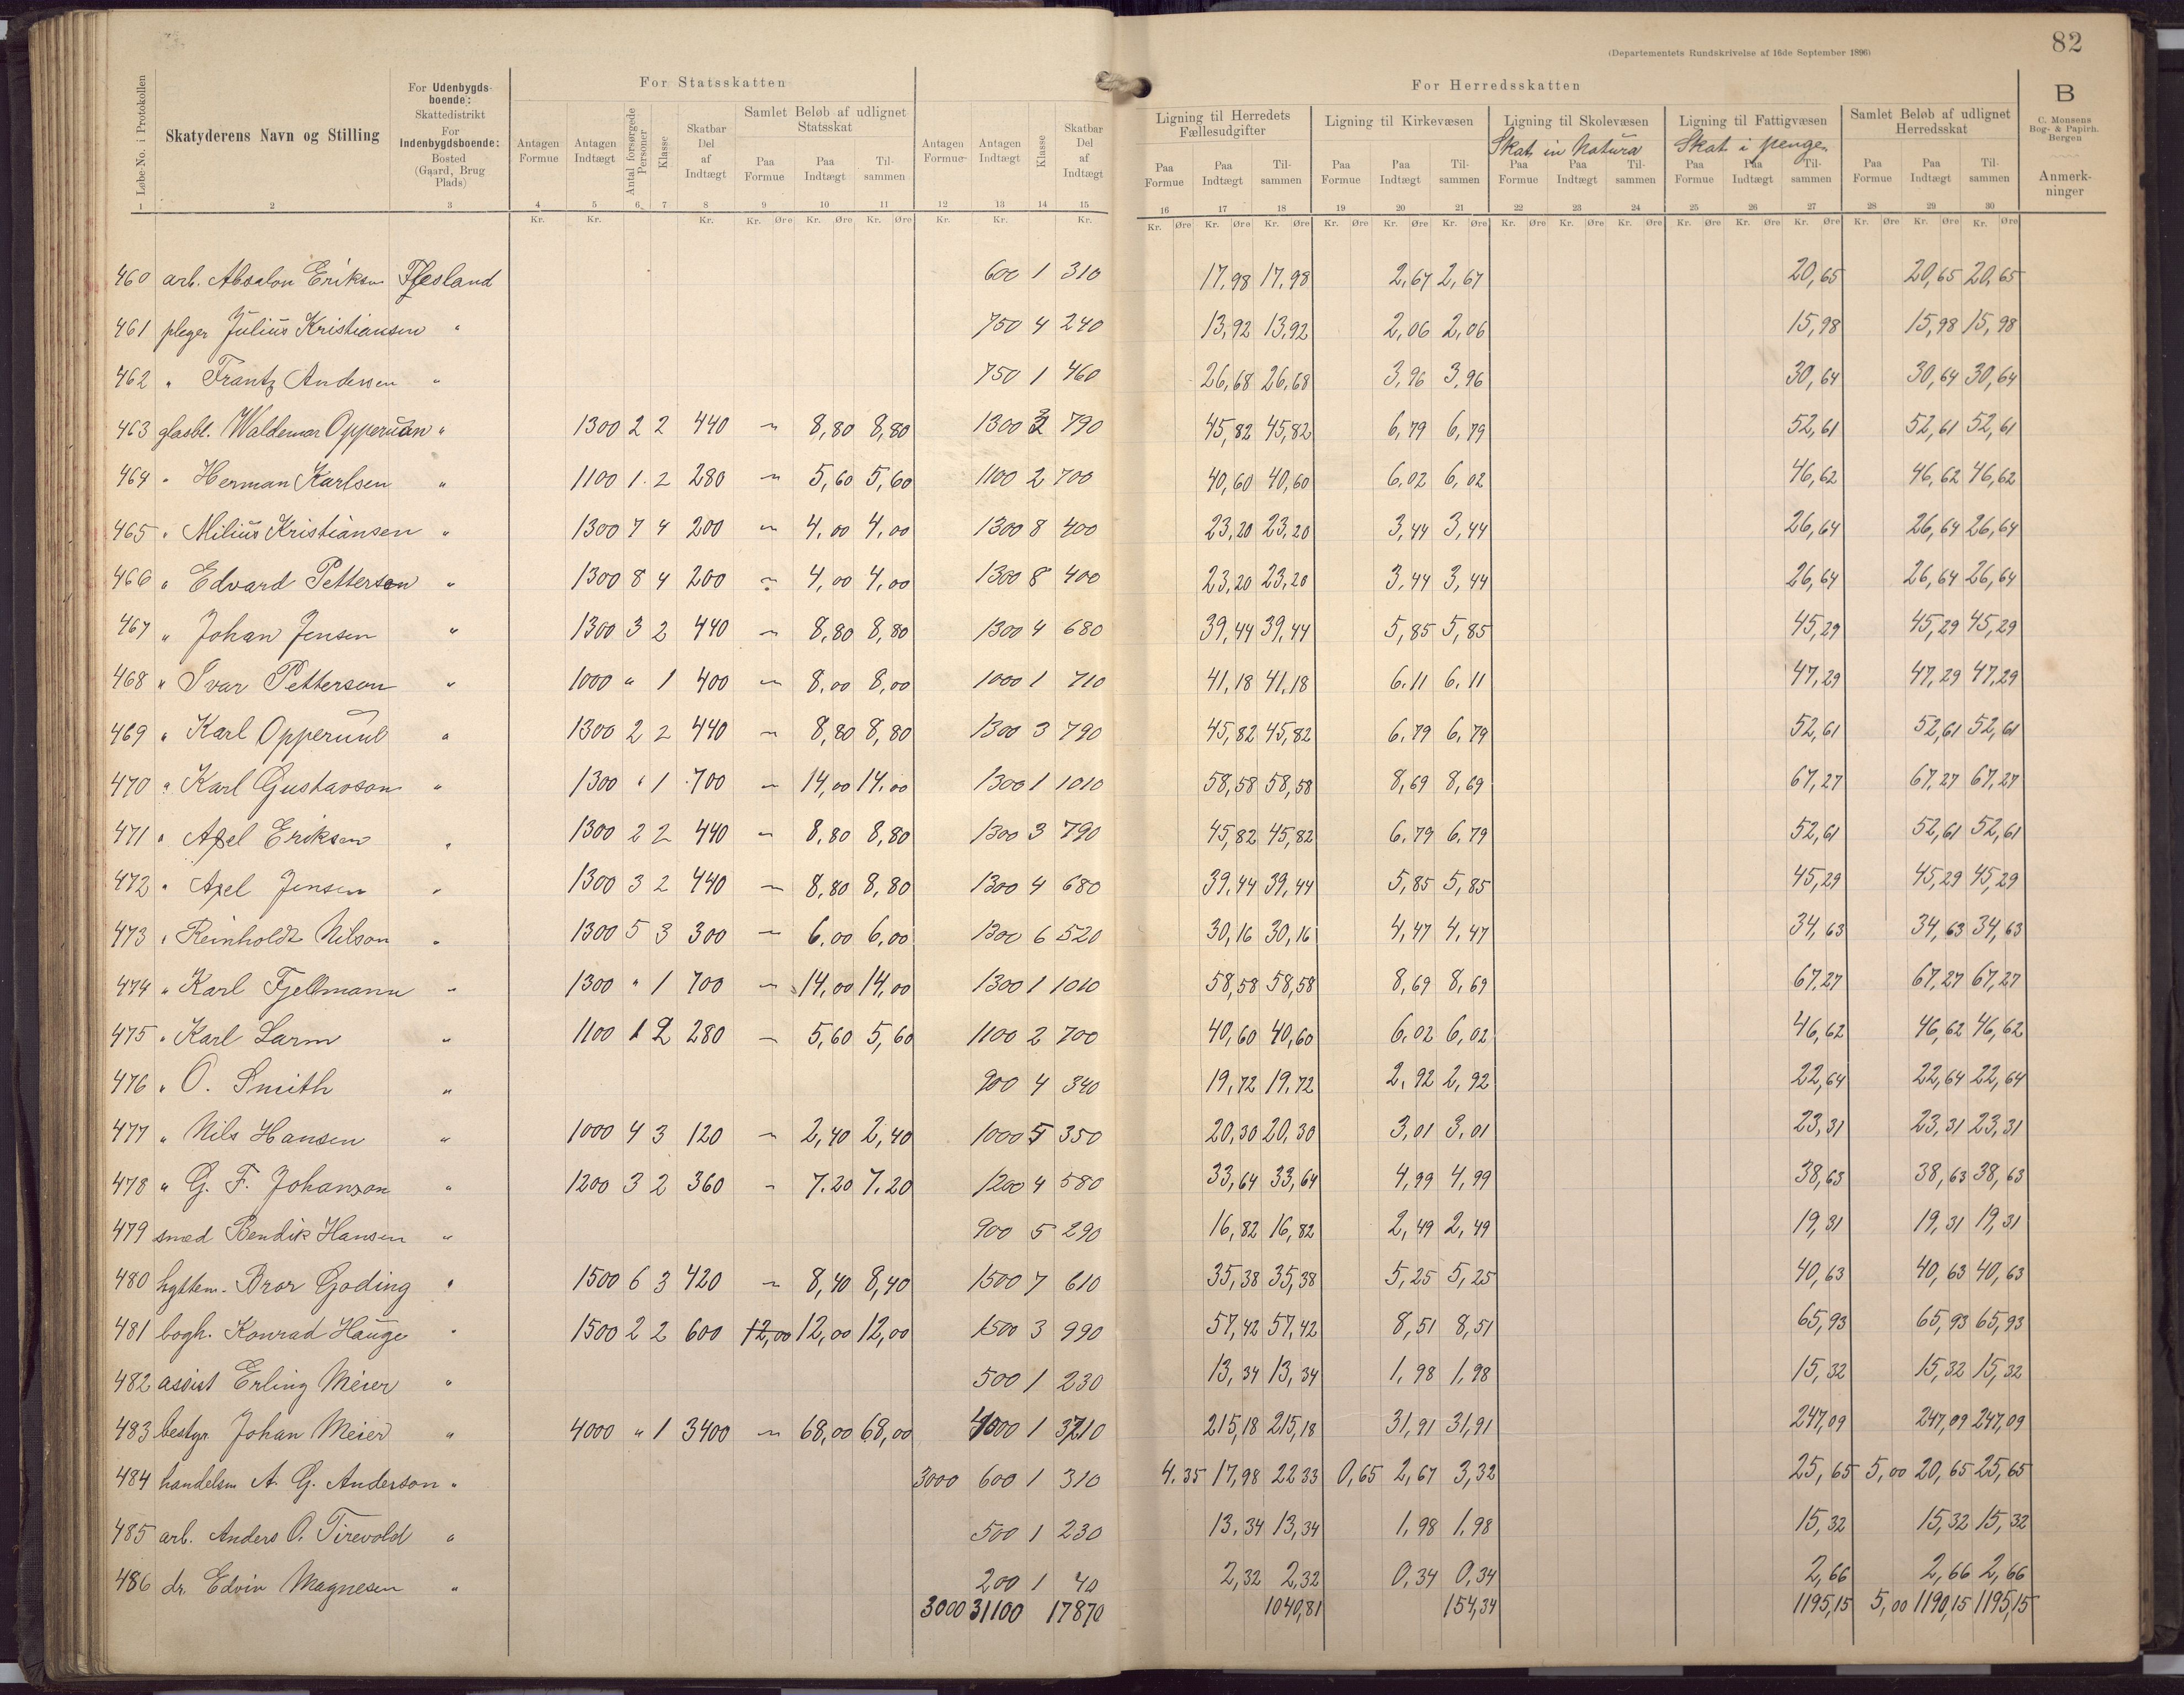 (Departementets Rundskrivelse af 16de September 1896)
82
For Statsskatten
For Herredsskatten
B
C. Monsens Bog- & Papirh. Bergen
Løbe-No. i Protokollen
Skatyderens Navn og Stilling
For Udenbygdsboende: Skattedistrikt For Indenbygdsboende: Bosted (Gaard, Brug Plads)
Antagen Formue
Antagen Indtægt
Antal forsørgede Personer
Klasse
Skatbar Del af Indtægt
Samlet Beløb af udlignet Statsskat
Paa Formue
Paa Indtægt
Tilsammen
Antagen Formue
Antagen Indtægt
Klasse
Skatbar Del af Indtægt
Ligning til Herredets Fællesudgifter
Paa Formue
Paa Indtægt
Tilsammen
Ligning til Kirkevæsen
Paa Formue
Paa Indtægt
Tilsammen
Ligning til Skolevæsen
Skat in Natura
Paa Formue
Paa Indtægt
Tilsammen
Ligning til Fattigvæsen
Skat i penge
Paa Formue
Paa Indtægt
Tilsammen
Samlet Beløb af udlignet Herredsskat
Paa Formue
Paa Indtægt
Tilsammen
Anmerkninger
1 2 3 4 5 6 7 8 9 10 11 12 13 14 15 16 17 18 19 20 21 22 23 24 25 26 27 28 29 30
Kr. Kr. Kr. Kr. Øre Kr. Øre Kr. Øre Kr. Kr. Kr. Kr. Øre Kr. Øre Kr. Øre Kr. Øre Kr. Øre Kr. Øre Kr. Øre Kr. Øre Kr. Øre Kr. Øre Kr. Øre Kr. Øre Kr. Øre Kr. Øre Kr. Øre
460 arb. Absalon Eriksen Flesland 600 1 310 17,98 17,98 2,67 2,67 20,65 20,65 20,65
461 pleger Julius Kristiansen " 750 4 240 13,92 13,92 2,06 2,06 15,98 15,98 15,98
462 " Frantz Andersen " 750 1 460 26,68 26,68 3,96 3,96 30,64 30,64 30,64
463 glasbl. Waldemar Opperuun " 1300 2 2 440 " 8,80 8,80 1300 3 790 45,82 45,82 6,79 6,79 52,61 52,61 52,61
464 " Herman Karlsen " 1100 1 2 280 " 5,60 5,60 1100 2 700 40,60 40,60 6,02 6,02 46,62 46,62 46,62
465 " Milius Kristiansen " 1300 7 4 200 " 4,00 4,00 1300 8 400 23,20 23,20 3,44 3,44 26,64 26,64 26,64
466 " Edvard Petterson " 1300 8 4 200 " 4,00 4,00 1300 8 400 23,20 23,20 3,44 3,44 26,64 26,64 26,64
467 " Johan Jensen " 1300 3 2 440 " 8,80 8,80 1300 4 680 39,44 39,44 5,85 5,85 45,29 45,29 45,29
468 " Ivar Petterson " 1000 " 1 400 " 8,00 8,00 1000 1 710 41,18 41,18 6,11 6,11 47,29 47,29 47,29
469 " Karl Opperuul " 1300 2 2 440 " 8,80 8,80 1300 3 790 45,82 45,82 6,79 6,79 52,61 52,61 52,61
470 " Karl Gustavson " 1300 " 1 700 " 14,00 14,00 1300 1 1010 58,58 58,58 8,69 8,69 67,27 67,27 67,27
471 " Axel Eriksen " 1300 2 2 440 " 8,80 8,80 1300 3 790 45,82 45,82 6,79 6,79 52,61 52,61 52,61
472 " Axel Jensen " 1300 3 2 440 " 8,80 8,80 1300 4 680 39,44 39,44 5,85 5,85 45,29 45,29 45,29
473 " Reinholdt Nilson " 1300 5 3 300 " 6,00 6,00 1300 6 520 30,16 30,16 4,47 4,47 34,63 34,63 34,63
474 " Karl Fjellmann " 1300 " 1 700 " 14,00 14,00 1300 1 1010 58,58 58,58 8,69 8,69 67,27 67,27 67,27
475 " Karl Larm " 1100 1 2 280 " 5,60 5,60 1100 2 700 40,60 40,60 6,02 6,02 46,62 46,62 46,62
476 " O. Smith " 900 4 340 19,72 19,72 2,92 2,92 22,64 22,64 22,64
477 " Nils Hansen " 1000 4 3 120 " 2,40 2,40 1000 5 350 20,30 20,30 3,01 3,01 23,31 23,31 23,31
478 " G. F. Johanson " 1200 3 2 360 " 7,20 7,20 1200 4 580 33,64 33,64 4,99 4,99 38,63 38,63 38,63
479 smed Bendik Hansen " 900 5 290 16,82 16,82 2,49 2,49 19,31 19,31 19,31
480 hyttem. Bror Goding " 1500 6 3 420 " 8,40 8,40 1500 7 610 35,38 35,38 5,25 5,25 40,63 40,63 40,63
481 bogh. Konrad Hauge " 1500 2 2 600 12,00 12,00 12,00 1500 3 990 57,42 57,42 8,51 8,51 65,93 65,93 65,93
482 assist Erling Meier " 500 1 230 13,34 13,34 1,98 1,98 15,32 15,32 15,32
483 bestyr. Johan Meier " 4000 " 1 3400 " 68,00 68,00 4000 1 3710 215,18 215,18 31,91 31,91 247,09 247,09 247,09
484 handelsm A. G. Anderson " 3000 600 1 310 4,35 17,98 22 33 0,65 2,67 3,32 25,65 5,00 20,65 25,65
485 arb. Anders O. Tirevold " 500 1 230 13,34 13,34 1,98 1,98 15,32 15,32 15,32
486 dr. Edvin Magnesen " 200 1 40 2,32 2,32 0,34 0,34 2,66 2,66 2,66
3000 31100 17870 1040,81 154,34 1195,15 5,00 1190,15 1195,15